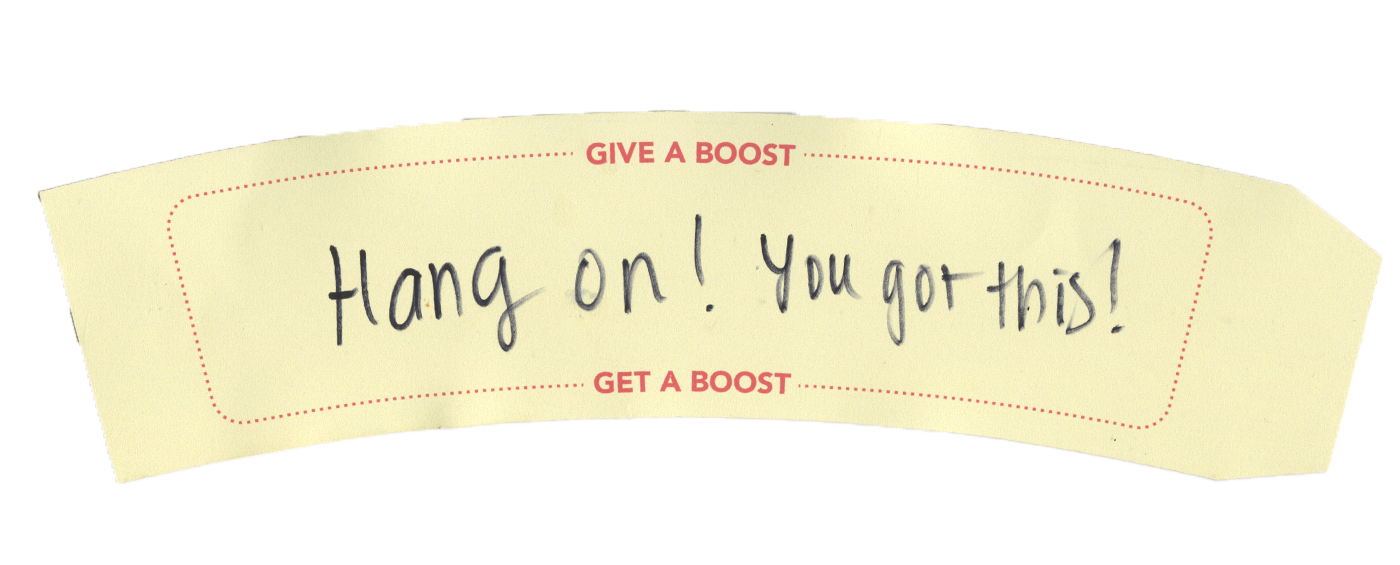 GIVE A BOOST
Hang on! You got this!
GET A BOOST